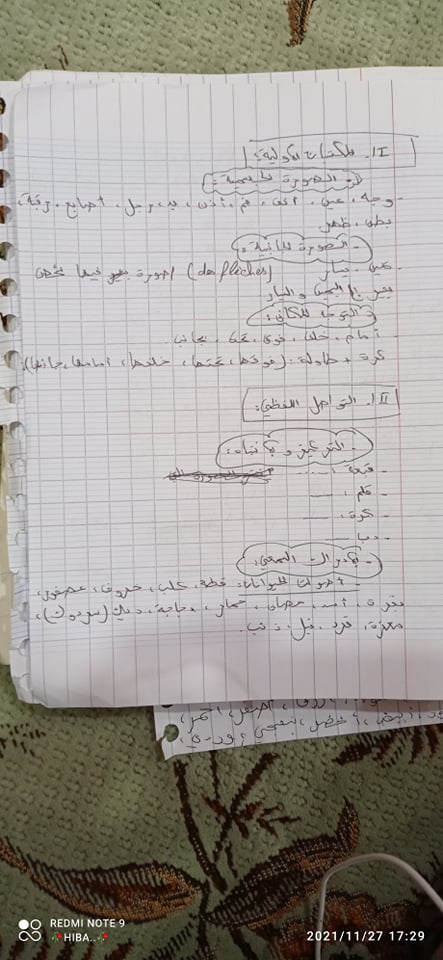 I- المكتسبات الأولية:
- الصورة الجسمية:
- وجه، عين، أنف، فم، أذن، يد، رجل، أصابع، رقبة،
بطن، ظهر
- الصورة الجانبية:
- يمين، يسار (des flèches) صورة فيها شخص
يميز اليمين و اليسار
- التوجه المكاني:
- أمام، خلف، فوق، تحت، بجانب.
كرة + طاولة: (فوقها، تحتها، خلفها، أمامها، جانبها)
II- التواصل اللفظي:
- التركيز و الانتباه:
- قبعة، ....
- قلم، ....
- كرة، ....
- دب ....
- الإدراك السمعي:
- أصوات الحيوانات: قطة، كلب، خروف، عصفور،
بقرة، أسد، حصان، حمار، دجاجة، ديك (سردوك)،
معزة، قرد، فيل، ذئب.
أزرق، أصفر، أحمر،
أبيض، أخضر، بنفسجي، وردي،
REDMI NOTE 9
HIBA..
2021/11/27 17:29